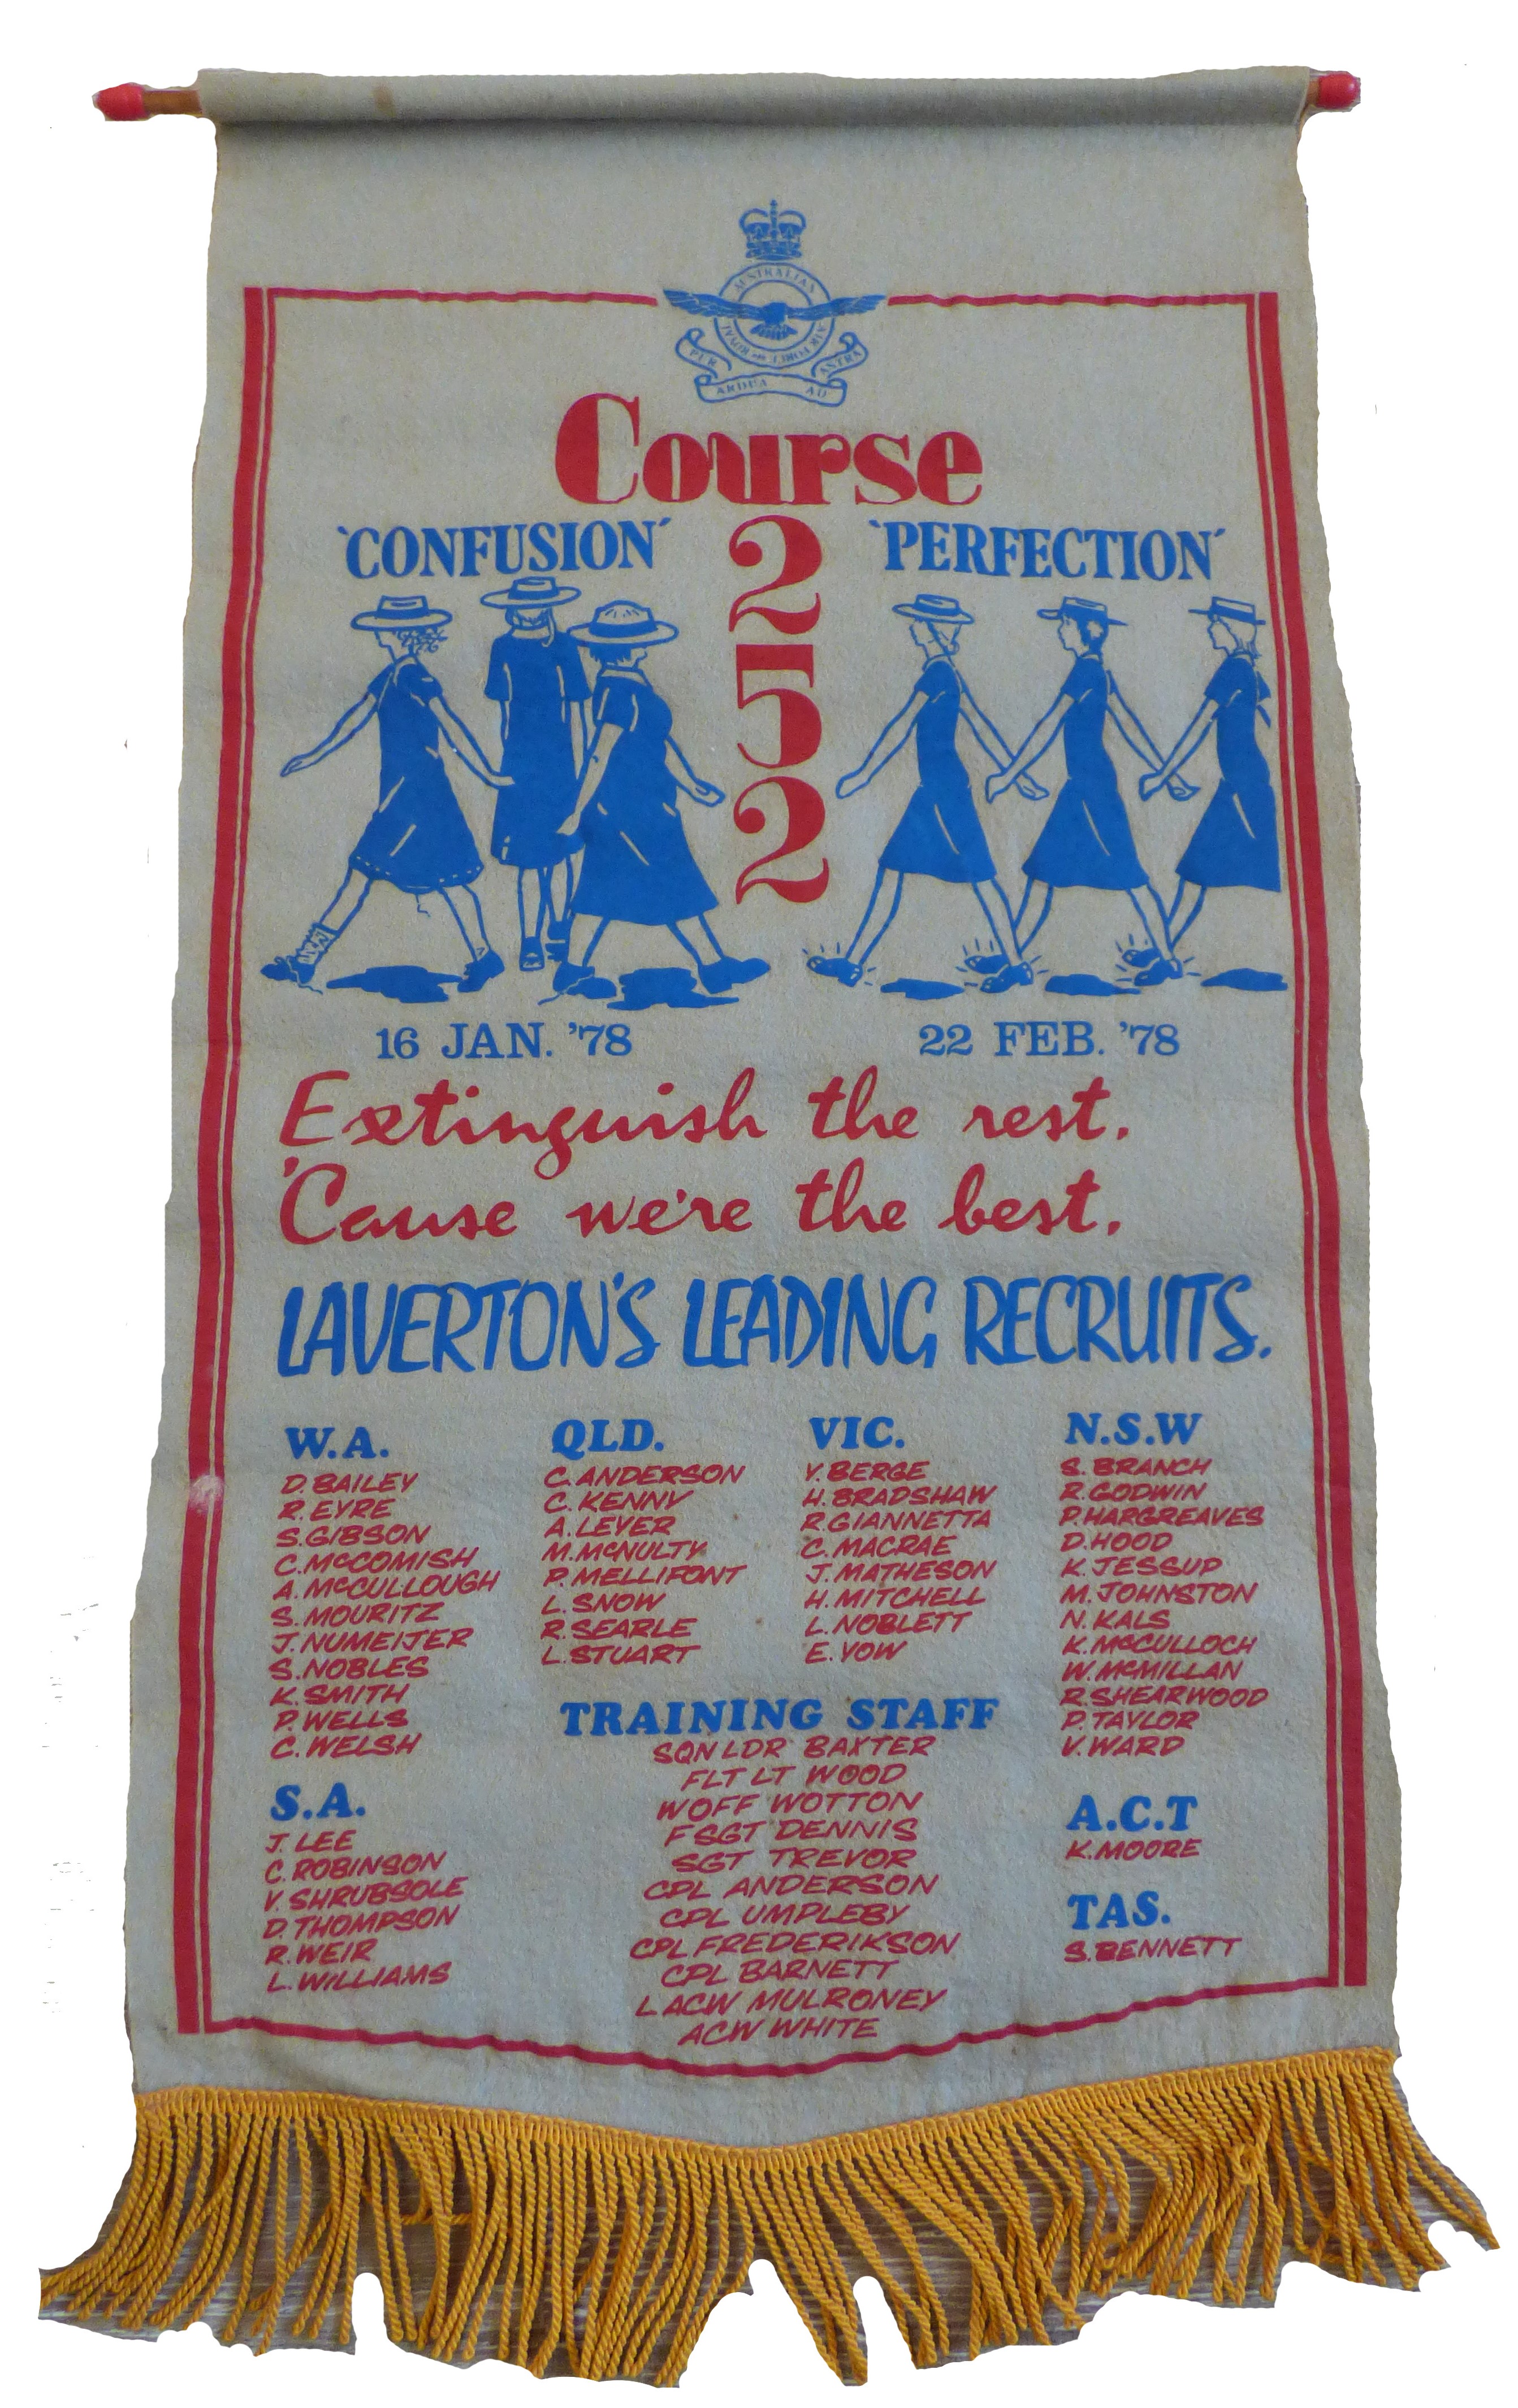 AUSTRALIAN
ROYAL AIR FORCE
PER ARDUA AD ASTRA
Course
'CONFUSION'
2
5
2
'PERFECTION'
16 JAN. '78
22 FEB. '78
Extinguish the rest.
'Cause we're the best.
LAVERTON'S LEADING RECRUITS.
W.A.
D. BAILEY
R. EYRE
S. GIBSON
C. McCOMISH
A. McCULLOUGH
S. MOURITZ
J. NUMEIJER
S. NOBLES
K. SMITH
P. WELLS
C. WELSH
S.A.
J. LEE
C. ROBINSON
V. SHRUBSOLE
D. THOMPSON
R. WEIR
L. WILLIAMS
QLD.
C. ANDERSON
C. KENNY
A. LEVER
M. McNULTY
P. MELLIFONT
L. SNOW
R. SEARLE
L. STUART
VIC.
Y. BERGE
H. BRADSHAW
R. GIANNETTA
C. MACRAE
J. MATHESON
H. MITCHELL
L. NOBLETT
E. YOW
TRAINING STAFF
SQN LDR BAXTER
FLT LT WOOD
WOFF WOTTON
F SGT DENNIS
SGT TREVOR
CPL ANDERSON
CPL UMPLEBY
CPL FREDERIKSON
CPL BARNETT
LACW MULRONEY
ACW WHITE
N.S.W
S. BRANCH
R. GODWIN
P. HARGREAVES
D. HOOD
K. JESSUP
M. JOHNSTON
N. KALS
K. McCULLOCH
W. McMILLAN
R. SHEARWOOD
P. TAYLOR
V. WARD
A.C.T
K. MOORE
TAS.
S. BENNETT